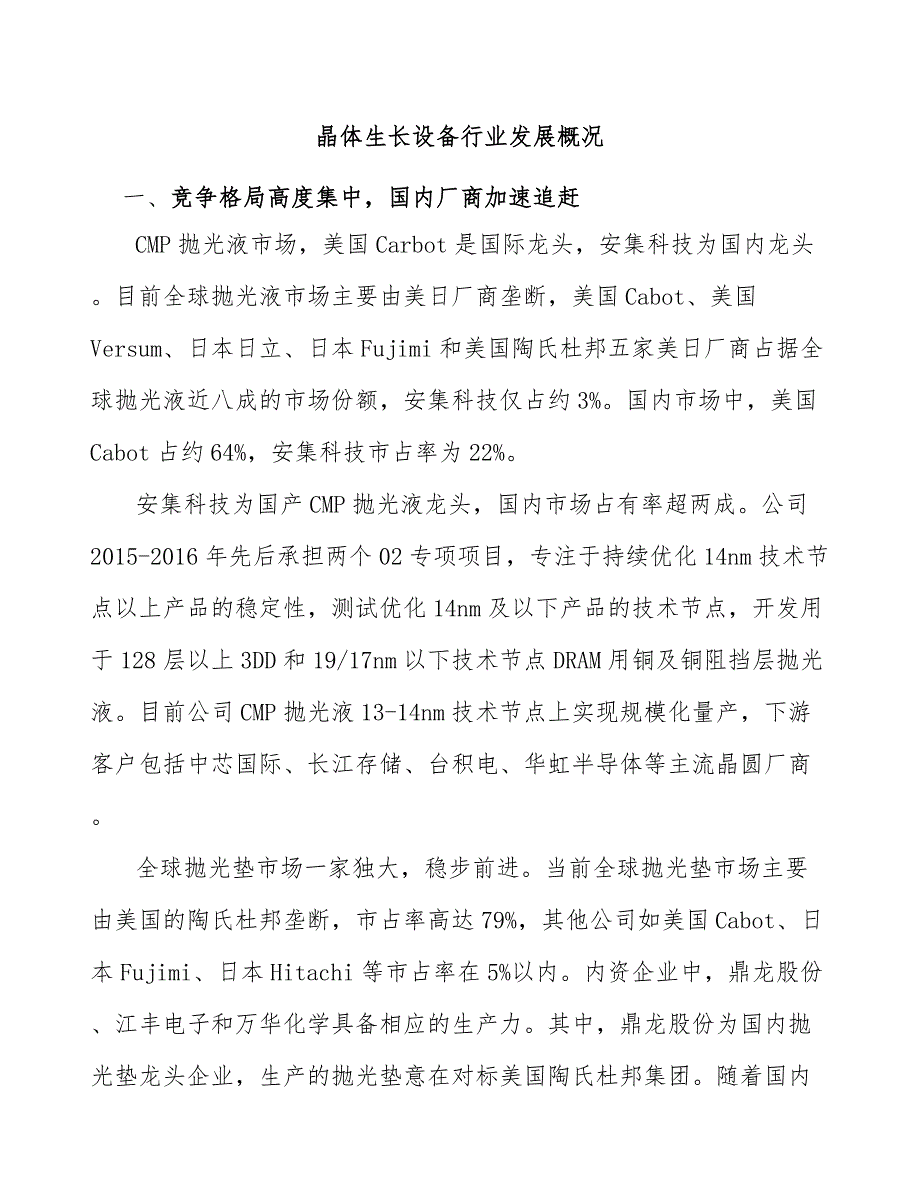 晶体生长设备行业发展概况
一、竞争格局高度集中，国内厂商加速追赶
CMP 抛光液市场，美国 Carbot 是国际龙头，安集科技为国内龙头
。目前全球抛光液市场主要由美日厂商垄断，美国 Cabot、美国
Versum、日本日立、日本 Fujimi 和美国陶氏杜邦五家美日厂商占据全
球抛光液近八成的市场份额，安集科技仅占约 3%。国内市场中，美国
Cabot 占约 64%，安集科技市占率为 22%。
安集科技为国产 CMP 抛光液龙头，国内市场占有率超两成。公司
2015-2016 年先后承担两个 02 专项项目，专注于持续优化 14nm 技术节
点以上产品的稳定性，测试优化 14nm 及以下产品的技术节点，开发用
于 128 层以上 3DD 和 19/17nm 以下技术节点 DRAM 用铜及铜阻挡层抛光
液。目前公司 CMP 抛光液 13-14nm 技术节点上实现规模化量产，下游
客户包括中芯国际、长江存储、台积电、华虹半导体等主流晶圆厂商
。
全球抛光垫市场一家独大，稳步前进。当前全球抛光垫市场主要
由美国的陶氏杜邦垄断，市占率高达 79%，其他公司如美国 Cabot、日
本 Fujimi、日本 Hitachi 等市占率在 5%以内。内资企业中，鼎龙股份
、江丰电子和万华化学具备相应的生产力。其中，鼎龙股份为国内抛
光垫龙头企业，生产的抛光垫意在对标美国陶氏杜邦集团。随着国内